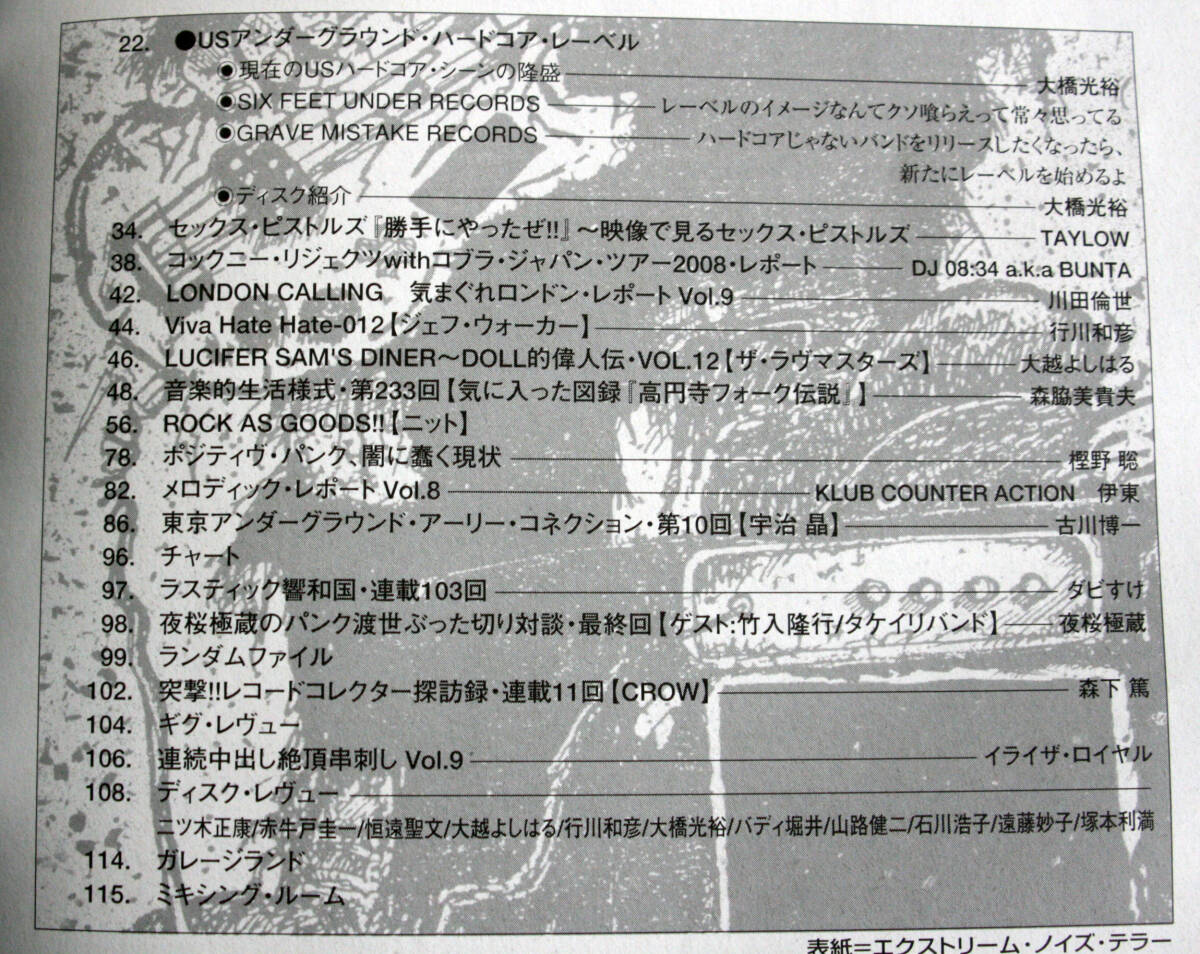 22. ●USアンダーグラウンド・ハードコア・レーベル
◉現在のUSハードコア・シーンの隆盛 大橋光裕
◉SIX FEET UNDER RECORDS レーベルのイメージなんてクソ喰らえって常々思ってる
◉GRAVE MISTAKE RECORDS ハードコアじゃないバンドをリリースしたくなったら、
新たにレーベルを始めるよ
◉ディスク紹介 大橋光裕
34. セックス・ピストルズ『勝手にやったぜ!!』〜映像で見るセックス・ピストルズ TAYLOW
38. コックニー・リジェクツwithコブラ・ジャパン・ツアー2008・レポート DJ 08:34 a.k.a BUNTA
42. LONDON CALLING 気まぐれロンドン・レポート Vol.9 川田倫世
44. Viva Hate Hate-012【ジェフ・ウォーカー】 行川和彦
46. LUCIFER SAM'S DINER〜DOLL的偉人伝・VOL.12【ザ・ラヴマスターズ】 大越よしはる
48. 音楽的生活様式・第233回【気に入った図録『高円寺フォーク伝説』】 森脇美貴夫
56. ROCK AS GOODS!!【ニット】
78. ポジティヴ・パンク、闇に蠢く現状 樫野 聡
82. メロディック・レポート Vol.8 KLUB COUNTER ACTION 伊東
86. 東京アンダーグラウンド・アーリー・コネクション・第10回【宇治 晶】 古川博一
96. チャート
97. ラスティック響和国・連載103回 ダビすけ
98. 夜桜極蔵のパンク渡世ぶった切り対談・最終回【ゲスト:竹入隆行/タケイリバンド】 夜桜極蔵
99. ランダムファイル
102. 突撃!!レコードコレクター探訪録・連載11回【CROW】 森下 篤
104. ギグ・レヴュー
106. 連続中出し絶頂串刺し Vol.9 イライザ・ロイヤル
108. ディスク・レヴュー
二ツ木正康/赤牛戸圭一/恒遠聖文/大越よしはる/行川和彦/大橋光裕/バディ堀井/山路健二/石川浩子/遠藤妙子/塚本利満
114. ガレージランド
115. ミキシング・ルーム
表紙=エクストリーム・ノイズ・テラー